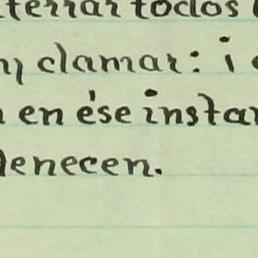 terrar todos
clamar: i
en ése instan
denecen.